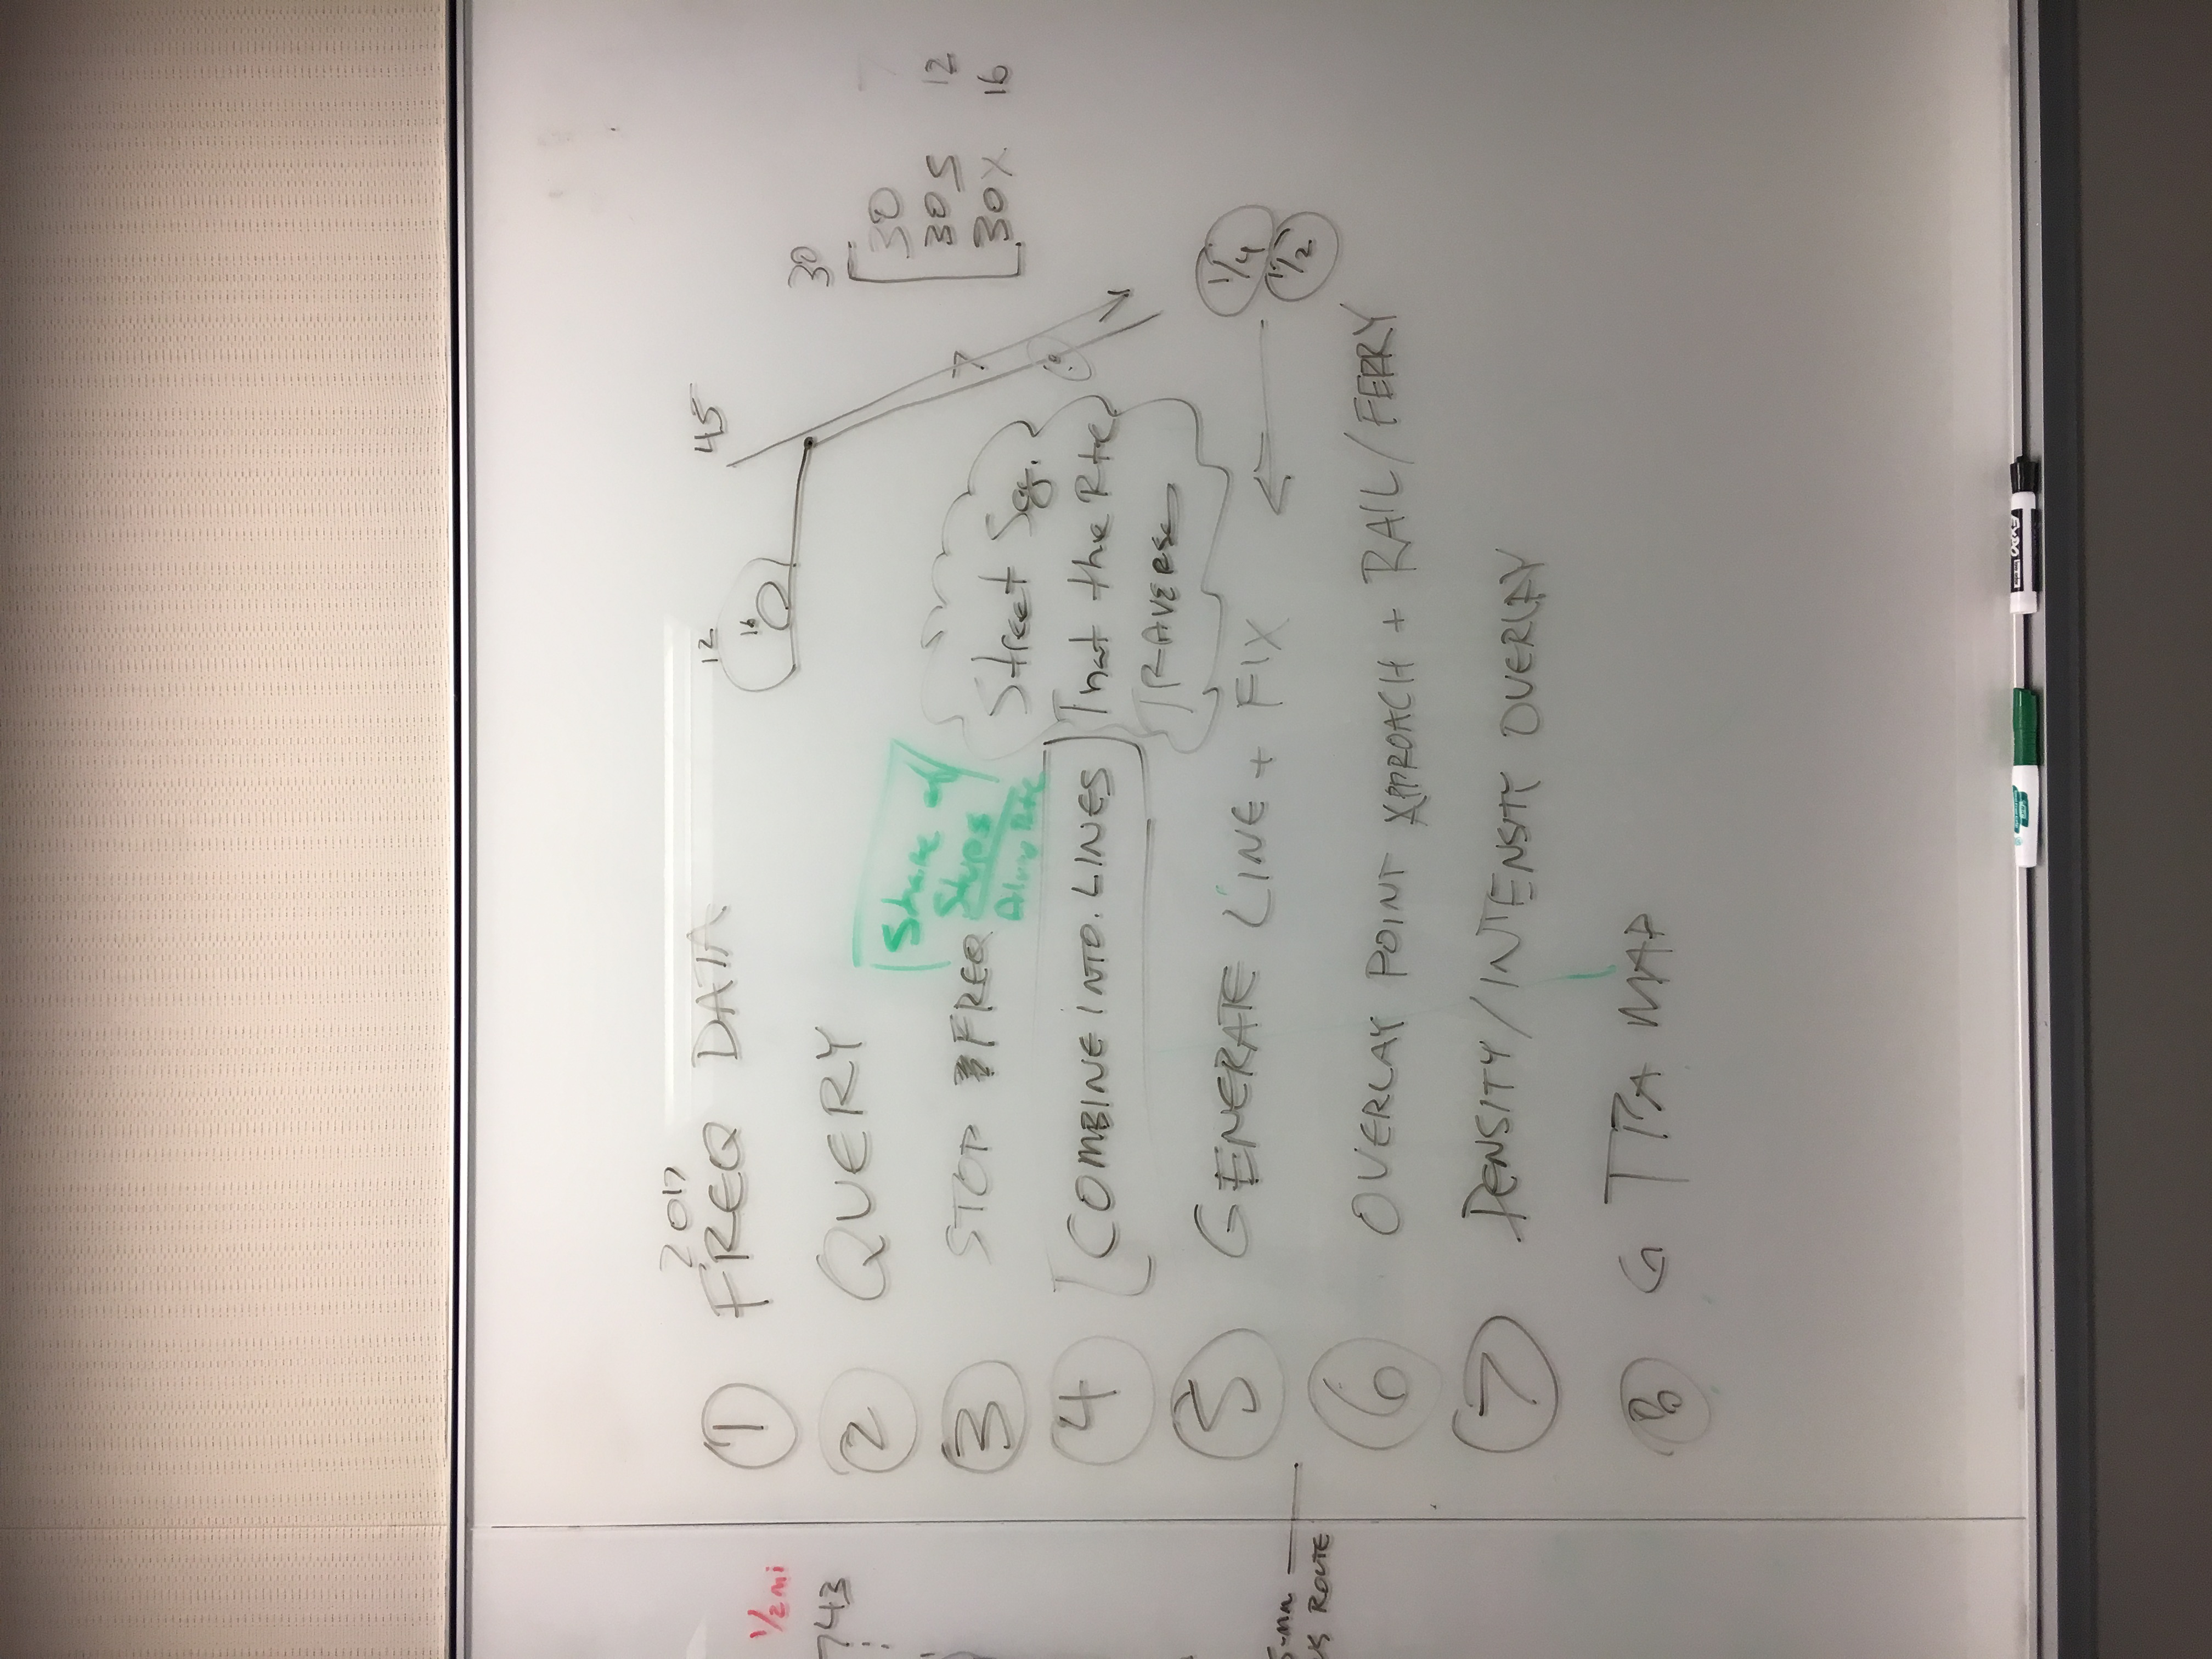 2017
1 FREQ DATA
2 QUERY
3 STOP FREQ
Share of
Stops
Along Rte
4 COMBINE INTO. LINES
Street Seg.
That the Rte
TRAVERSES
5 GENERATE LINE + FIX
1/4
1/2
6 OVERLAY POINT APPROACH + RAIL/FERRY
7 DENSITY/INTENSITY OVERLAY
8 G TPA MAP
12
16
45
7
30
30 7
30S 12
30X 16
1/2 mi
743
ROUTE
EXPO